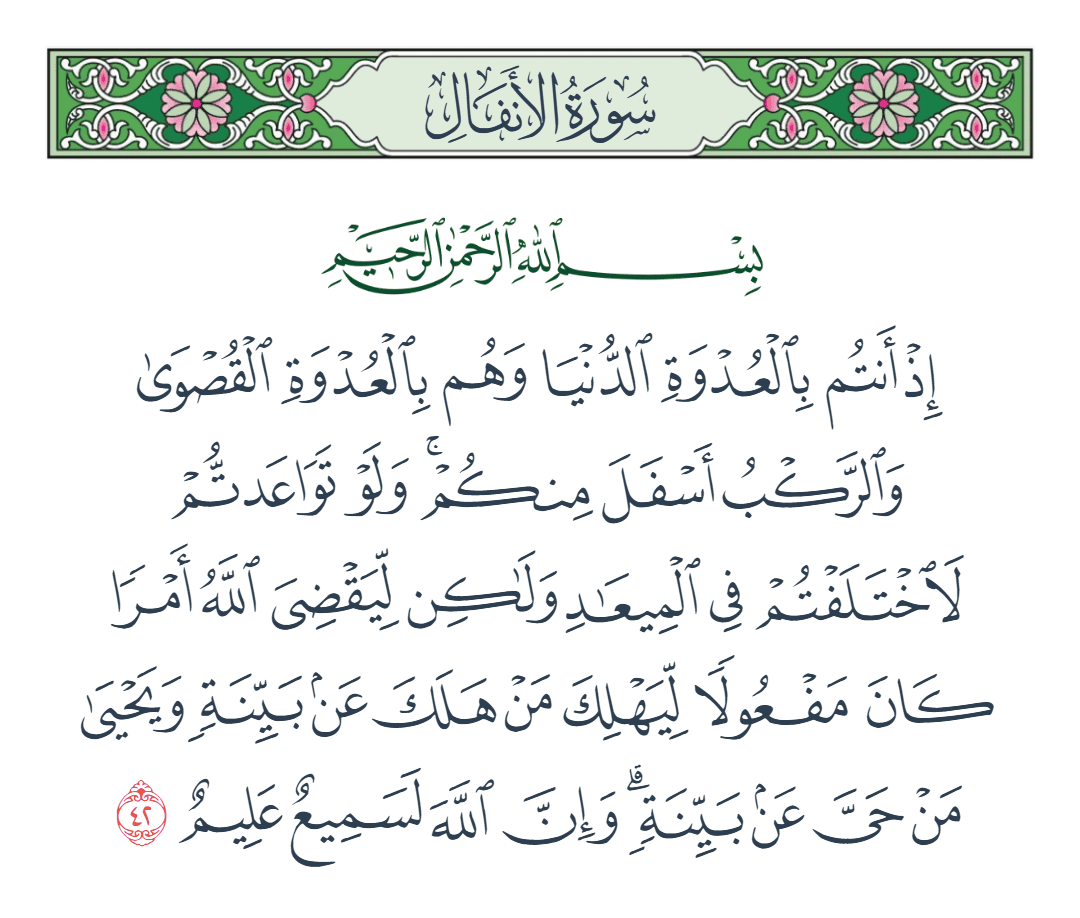 سُورَةُ الأَنفَالِ
بِسْمِ ٱللَّهِ ٱلرَّحْمَٰنِ ٱلرَّحِيمِ
إِذْ أَنتُم بِٱلْعُدْوَةِ ٱلدُّنْيَا وَهُم بِٱلْعُدْوَةِ ٱلْقُصْوَىٰ
وَٱلرَّكْبُ أَسْفَلَ مِنكُمْ ۚ وَلَوْ تَوَاعَدتُّمْ
لَٱخْتَلَفْتُمْ فِى ٱلْمِيعَـٰدِ وَلَـٰكِن لِّيَقْضِىَ ٱللَّهُ أَمْرًا
كَانَ مَفْعُولًا لِّيَهْلِكَ مَنْ هَلَكَ عَنۢ بَيِّنَةٍ وَيَحْيَىٰ
مَنْ حَىَّ عَنۢ بَيِّنَةٍ ۗ وَإِنَّ ٱللَّهَ لَسَمِيعٌ عَلِيمٌ ٤٢